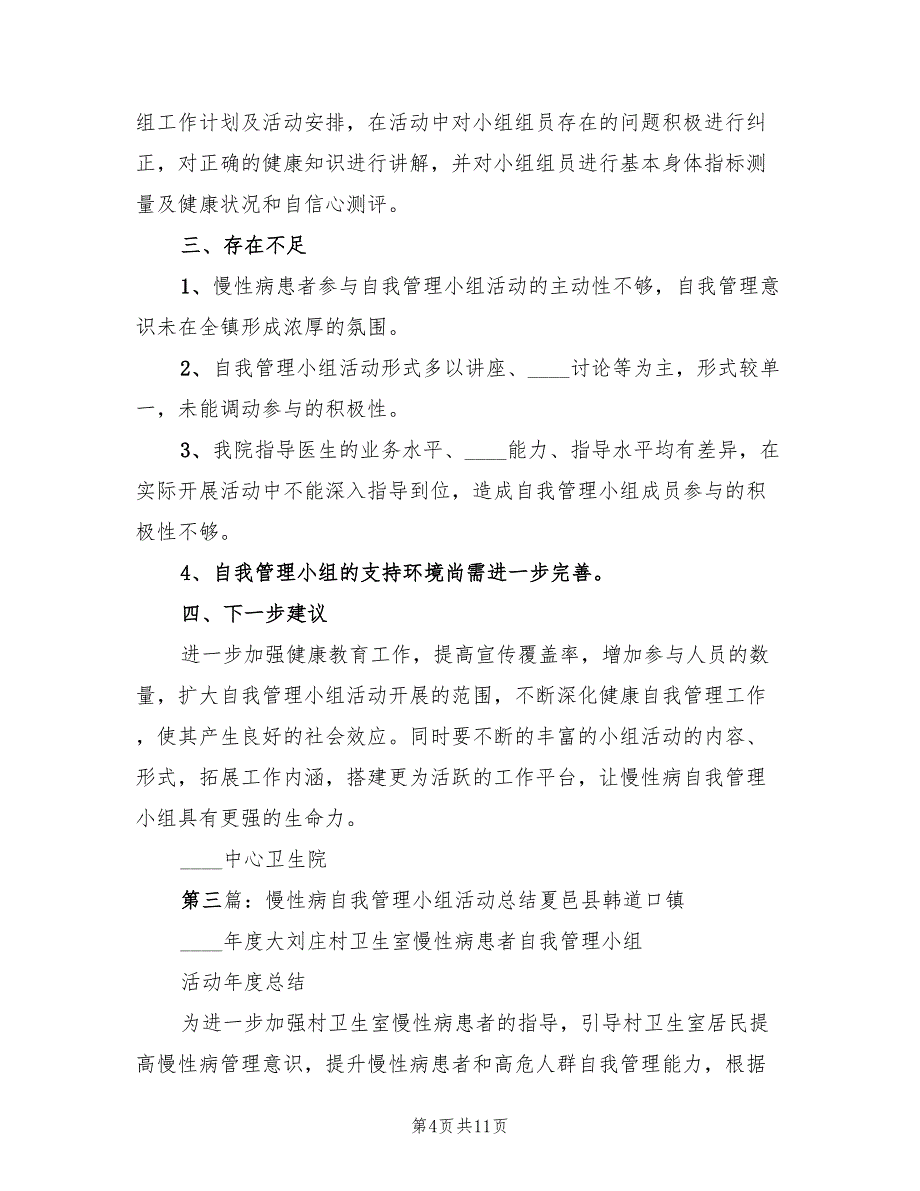 组工作计划及活动安排，在活动中对小组组员存在的问题积极进行纠
正，对正确的健康知识进行讲解，并对小组组员进行基本身体指标测
量及健康状况和自信心测评。
三、存在不足
1、慢性病患者参与自我管理小组活动的主动性不够，自我管理意
识未在全镇形成浓厚的氛围。
2、自我管理小组活动形式多以讲座、____讨论等为主，形式较单
一，未能调动参与的积极性。
3、我院指导医生的业务水平、____能力、指导水平均有差异，在
实际开展活动中不能深入指导到位，造成自我管理小组成员参与的积
极性不够。
4、自我管理小组的支持环境尚需进一步完善。
四、下一步建议
进一步加强健康教育工作，提高宣传覆盖率，增加参与人员的数
量，扩大自我管理小组活动开展的范围，不断深化健康自我管理工作
，使其产生良好的社会效应。同时要不断的丰富的小组活动的内容、
形式，拓展工作内涵，搭建更为活跃的工作平台，让慢性病自我管理
小组具有更强的生命力。
____中心卫生院
第三篇：慢性病自我管理小组活动总结夏邑县韩道口镇
____年度大刘庄村卫生室慢性病患者自我管理小组
活动年度总结
为进一步加强村卫生室慢性病患者的指导，引导村卫生室居民提
高慢性病管理意识，提升慢性病患者和高危人群自我管理能力，根据
第4页共11页